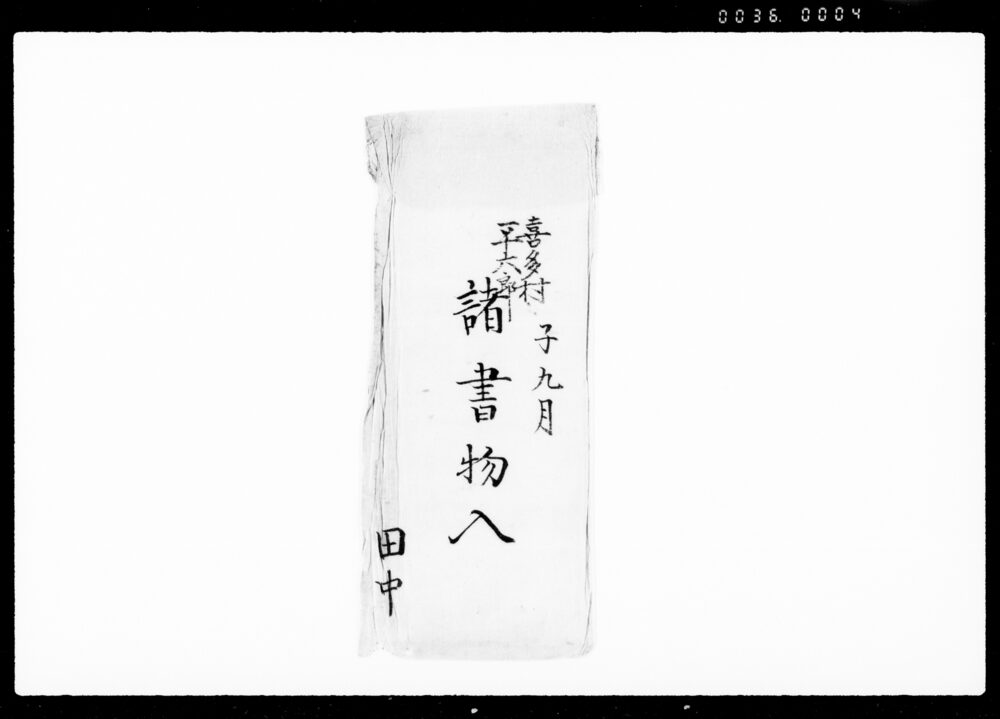 0036. 0004
喜多村
平六郎
子九月
諸書物入
田中